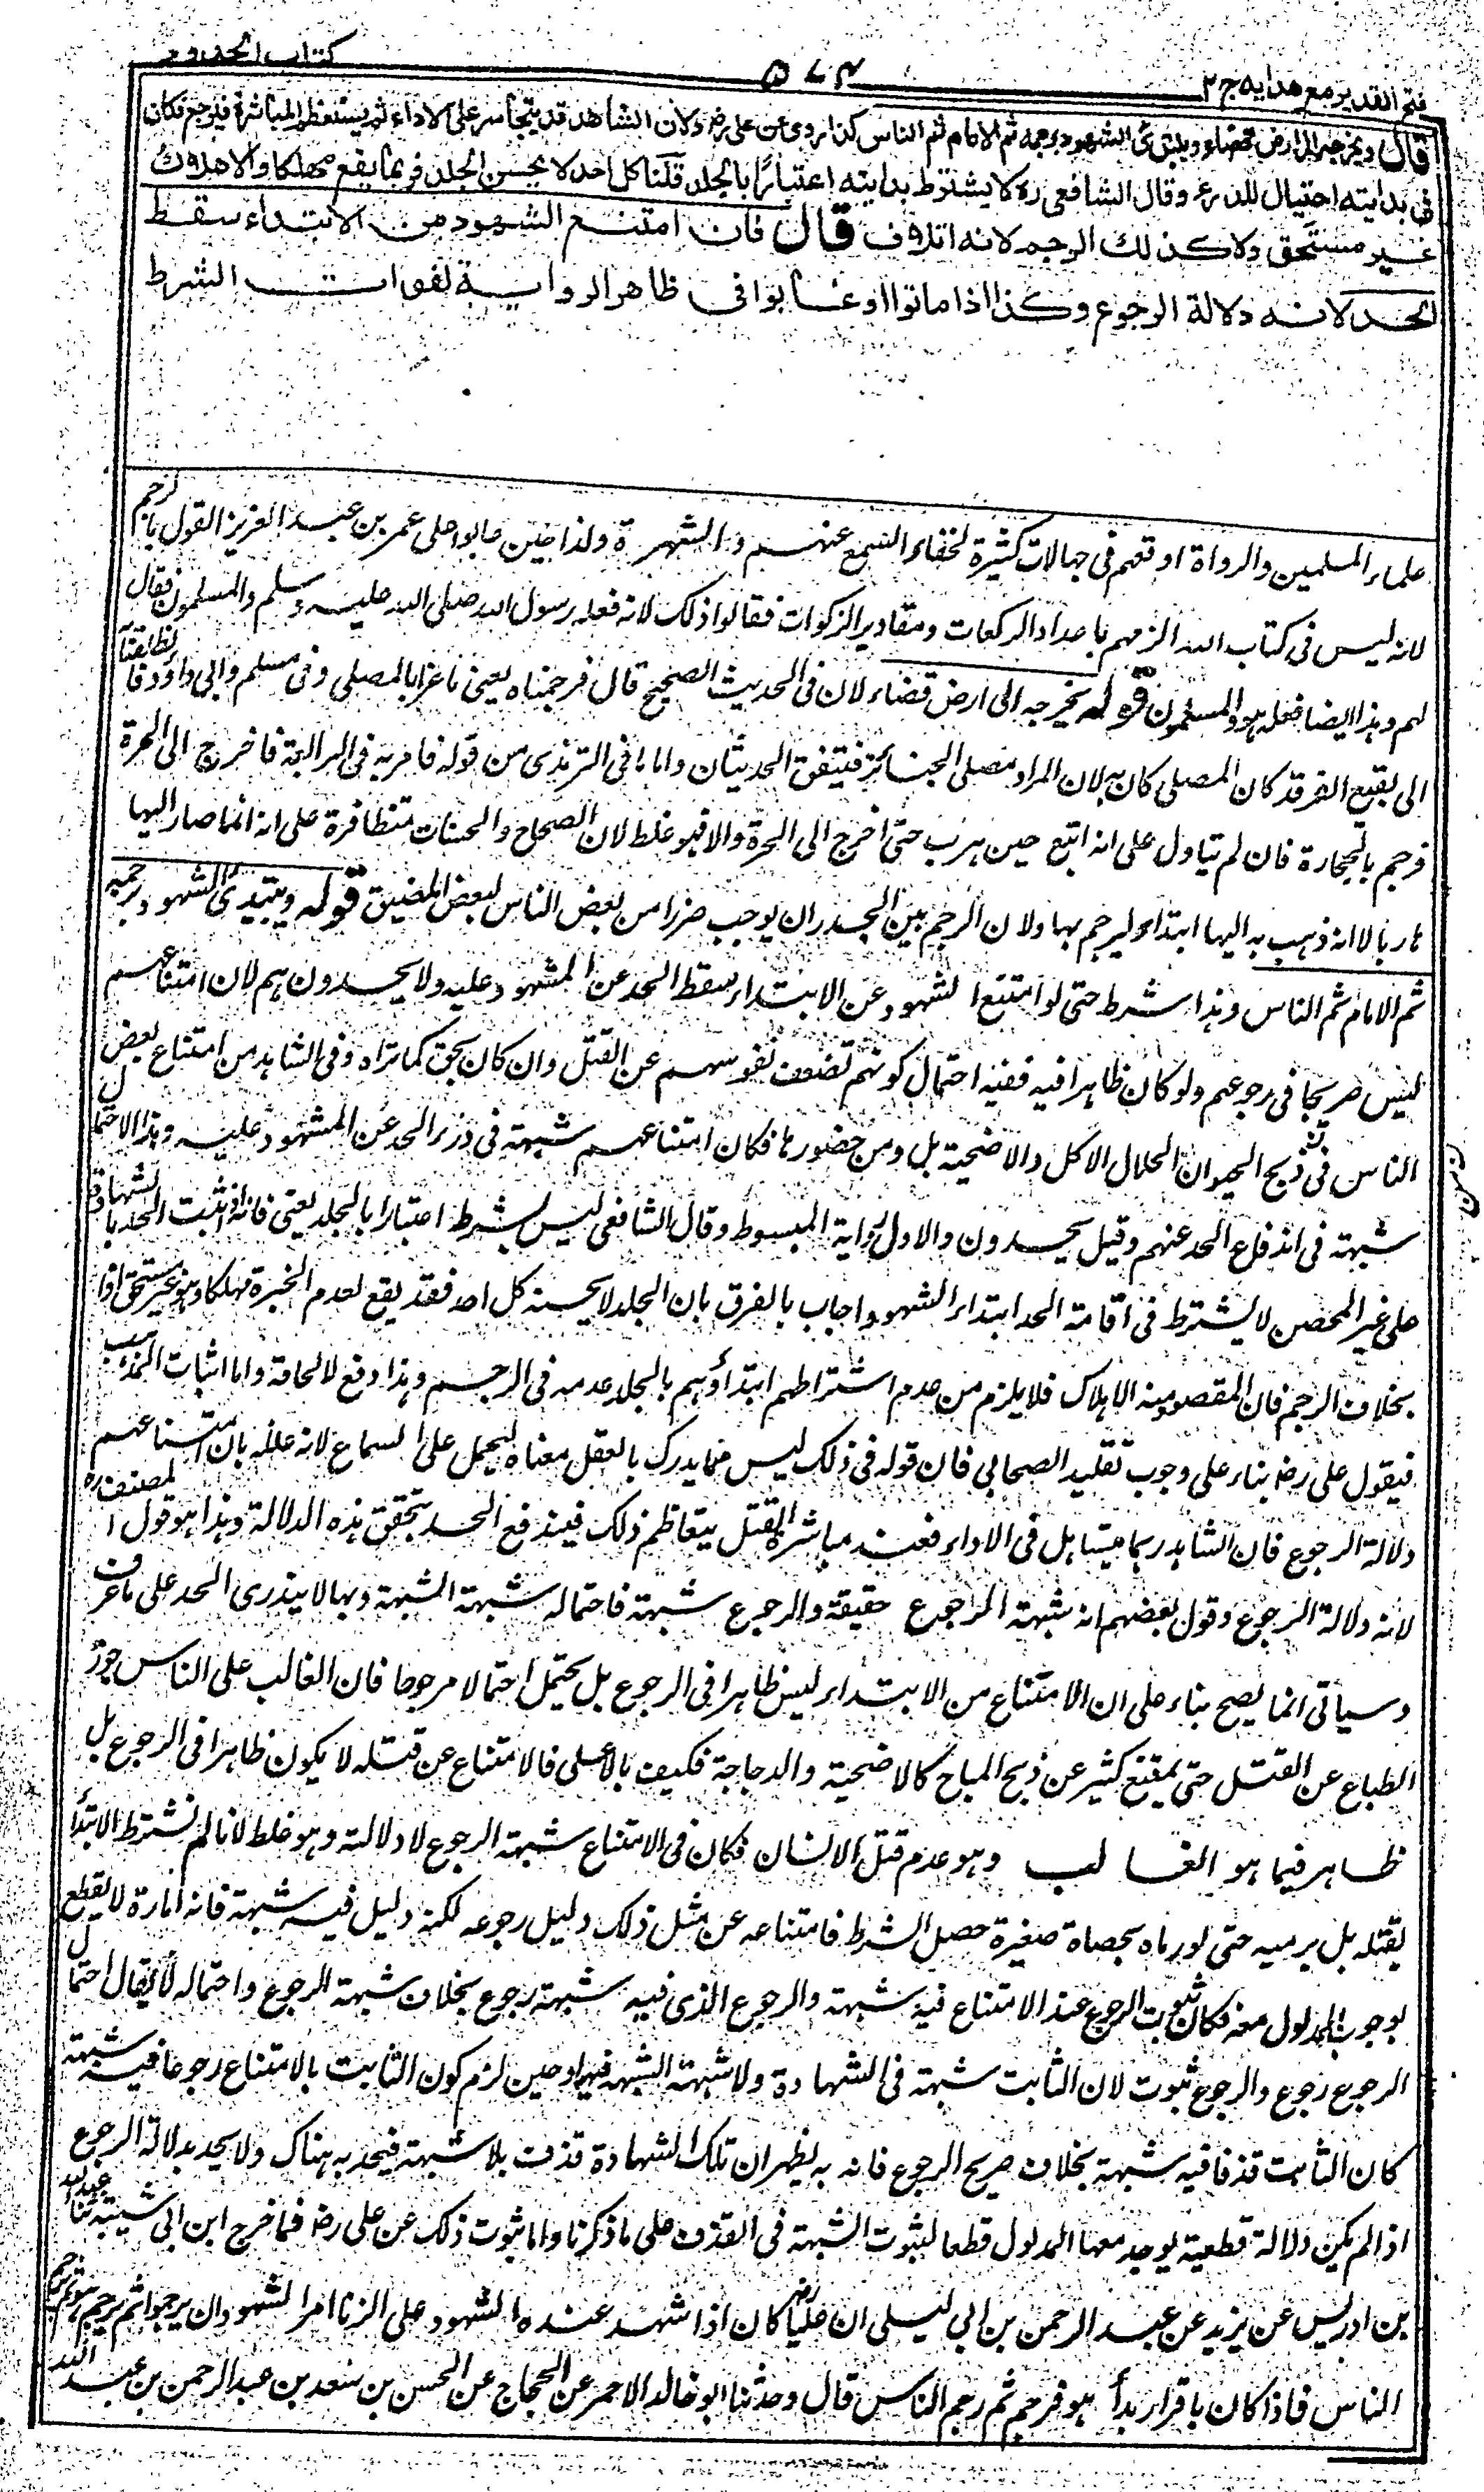 فتح القدير مع هدايه ج ٢
٥٧٤
كتاب الحدود
قال ويخرجه الى ارض فضاء ويبتدئ الشهود برجمه ثم الامام ثم الناس كذا روى عن على رض ولان الشاهد قد يتجاسر على الاداء ثم يستعظم المباشرة فيرجع فكان
فى بدايته احتيال للدرء وقال الشافعى ره لا يشترط بدايته اعتبارا بالجلد قلنا كل احد لا يحسن الجلد فربما يقع مهلكا والاهلاك
غير مستحق ولا كذلك الرجم لانه اتلاف قال فان امتنع الشهود من الابتداء سقط
الحد لانه دلالة الرجوع وكذا اذا ماتوا او غابوا فى ظاهر الرواية لفوات الشرط
علماء المسلمين والرواة اوقعهم فى جهالات كثيرة لخفاء السمع عنهم والشهرة ولذا حين عابوا على عمر بن عبد العزيز القول بالرجم
لانه ليس فى كتاب الله الزمهم باعداد الركعات ومقادير الزكوات فقالوا ذلك لانه فعله رسول الله صلى الله عليه وسلم والمسلمون فقال
لهم وهذا ايضا فعله هو والمسلمون قوله يخرجه الى ارض فضاء لان فى الحديث الصحيح قال فرجمناه يعنى ماعزا بالمصلى وفى مسلم وابى داود فانطلقنا
الى بقيع الغرقد كان المصلى كان به لان المراد مصلى الجنائز فيتفق الحديثان واما ما فى الترمذى من قوله فامر به فى الرابعة فاخرج الى الحرة
فرجم بالحجارة فان لم يتاول على انه اتبع حين هرب حتى اخرج الى الحرة والا فهو غلط لان الصحاح والحسنات متظافرة على انه انما صار اليها
هاربا لا انه ذهب به اليها ابتداء ليرجم بها ولان الرجم بين الجدران يوجب ضررا من بعض الناس لبعض للضيق قوله ويبتدئ الشهود برجمه
ثم الامام ثم الناس وهذا شرط حتى لو امتنع الشهود عن الابتداء سقط الحد عن المشهود عليه ولا يحدون هم لان امتناعهم
ليس صريحا فى رجوعهم ولو كان ظاهرا فيه ففيه احتمال كونهم تضعف نفوسهم عن القتل وان كان بحق كما تراه وفى الشاهد من امتناع بعض
الناس فى ذبح الحيوان الحلال الاكل والاضحية بل ومن حضورها فكان امتناعهم شبهة فى درء الحد عن المشهود عليه وهذا الاحتمال
شبهة فى اندفاع الحد عنهم وقيل يحدون والاول رواية المبسوط وقال الشافعى ليس بشرط اعتبارا بالجلد يعنى فانه اذا ثبت الحد بالشهادة
على غير المحصن لا يشترط فى اقامة الحد ابتداء الشهود واجاب بالفرق بان الجلد لا يحسنه كل احد فقد يقع لعدم الخبرة مهلكا وهو غير مستحق اذا
بخلاف الرجم فان المقصود منه الاهلاك فلا يلزم من عدم اشتراطهم ابتداؤهم بالجلد عدمه فى الرجم وهذا دفع لالحاقه واما اثبات المذهب
فبقول على رض بناء على وجوب تقليد الصحابى فان قوله فى ذلك ليس مما يدرك بالعقل معناه ليحمل على السماع لانه علله بان امتناعهم
دلالة الرجوع فان الشاهد ربما يتساهل فى الاداء فعند مباشرة القتل يتعاظم ذلك فيندفع الحد بتحقق هذه الدلالة وهذا هو قول المصنف ره
لانه دلالة الرجوع وقول بعضهم انه شبهة الرجوع حقيقة والرجوع شبهة فاحتماله شبهة الشبهة وبها لا يندرى الحد على ما عرف
وسيأتى انما يصح بناء على ان الامتناع من الابتداء ليس ظاهرا فى الرجوع بل يحتمل احتمالا مرجوحا فان الغالب على الناس خور
الطباع عن القتل حتى يمتنع كثير عن ذبح المباح كالاضحية والدجاجة فكيف بالاعلى فالامتناع عن قتله لا يكون ظاهرا فى الرجوع بل
ظاهر فيما هو الغالب وهو عدم قتل الانسان فكان فى الامتناع شبهة الرجوع لا دلالته وهو غلط لانا لم نشترط الابتداء
بقتله بل برميه حتى لو رماه بحصاة صغيرة حصل الشرط فامتناعه عن مثل ذلك دليل رجوعه لكنه دليل فيه شبهة فانه امارة لا يقطع
بوجوب المدلول معه فكان ثبوت الرجوع عند الامتناع فيه شبهة والرجوع الذى فيه شبهة رجوع بخلاف شبهة الرجوع واحتماله لا يقال احتمال
الرجوع رجوع والرجوع ثبوت لان الثابت شبهة فى الشهادة ولا شبهة الشبهة فيها وحين لزم كون الثابت بالامتناع رجوعا فيه شبهة
كان الثابت قذفا فيه شبهة بخلاف صريح الرجوع فانه به يظهر ان تلك الشهادة قذف بلا شبهة فيحد به هناك ولا يحد بدلالة الرجوع
اذا لم يكن دلالة قطعية يوجد معها المدلول قطعا لثبوت الشبهة فى القذف على ما ذكرنا واما ثبوت ذلك عن على رض فما خرج ابن ابى شيبة ثنا عبد الله
بن ادريس عن يزيد عن عبد الرحمن بن ابى ليلى ان عليا رض كان اذا شهد عنده الشهود على الزنا امر الشهود ان يرجموا ثم يرجم هو ثم يرجم
الناس فاذا كان باقرار بدأ هو فرجم ثم رجم الناس قال وحدثنا ابو خالد الاحمر عن الحجاج عن الحسن بن سعد بن عبد الرحمن بن عبد الله